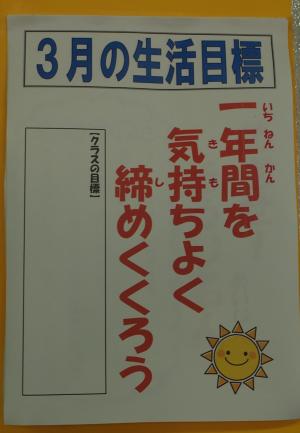 3月の生活目標
いちねんかん
一年間を
きも
気持ちよく
し
締めくくろう
【クラスの目標】